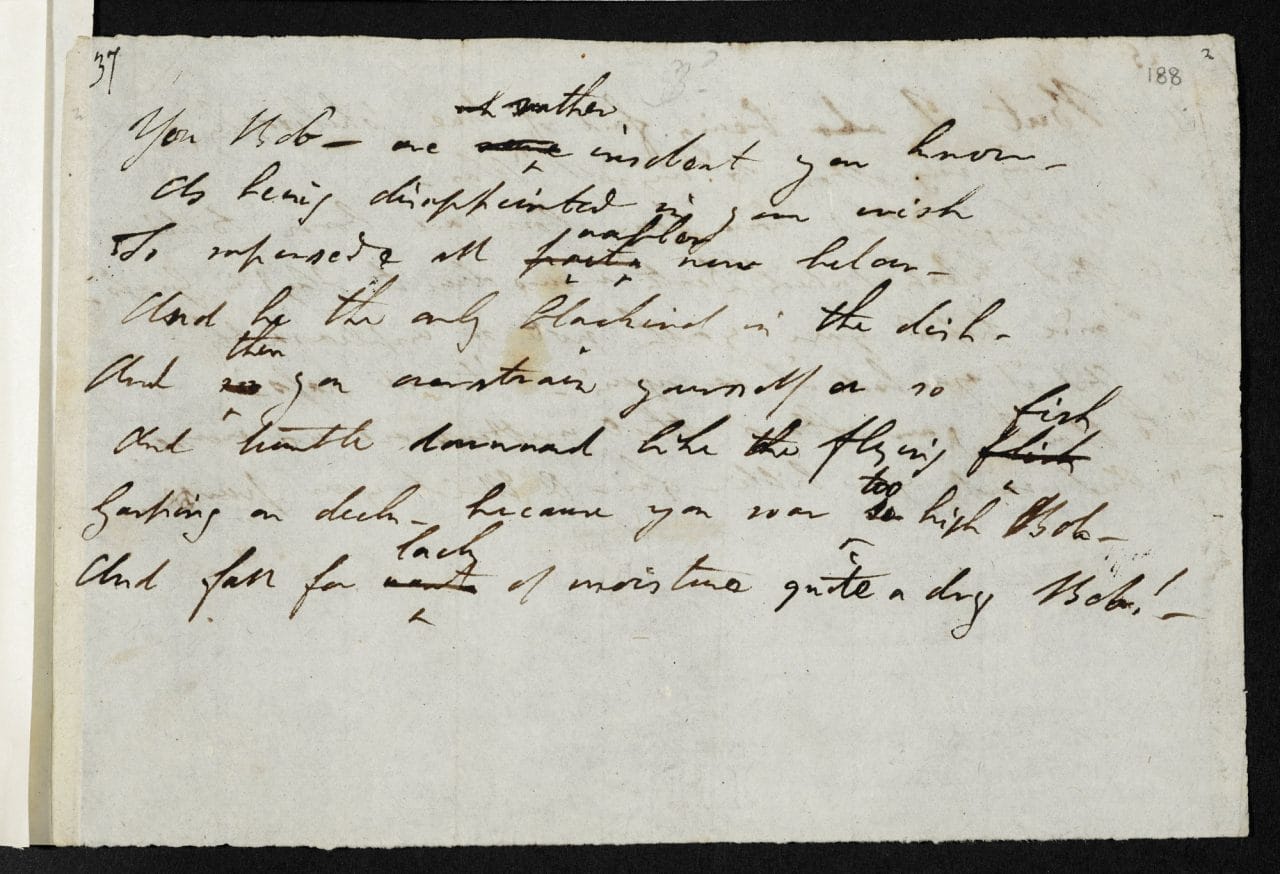 37
188
You Bob — are rather insolent you know —
At being disappointed in your wish
To supersede all warblers here below —
And be the only Blackbird in the dish —
And then you overstrain yourself or so
And tumble downward like the flying fish
Gasping on deck — because you soar too high Bob —
And fall for lack of moisture quite a dry Bob! —